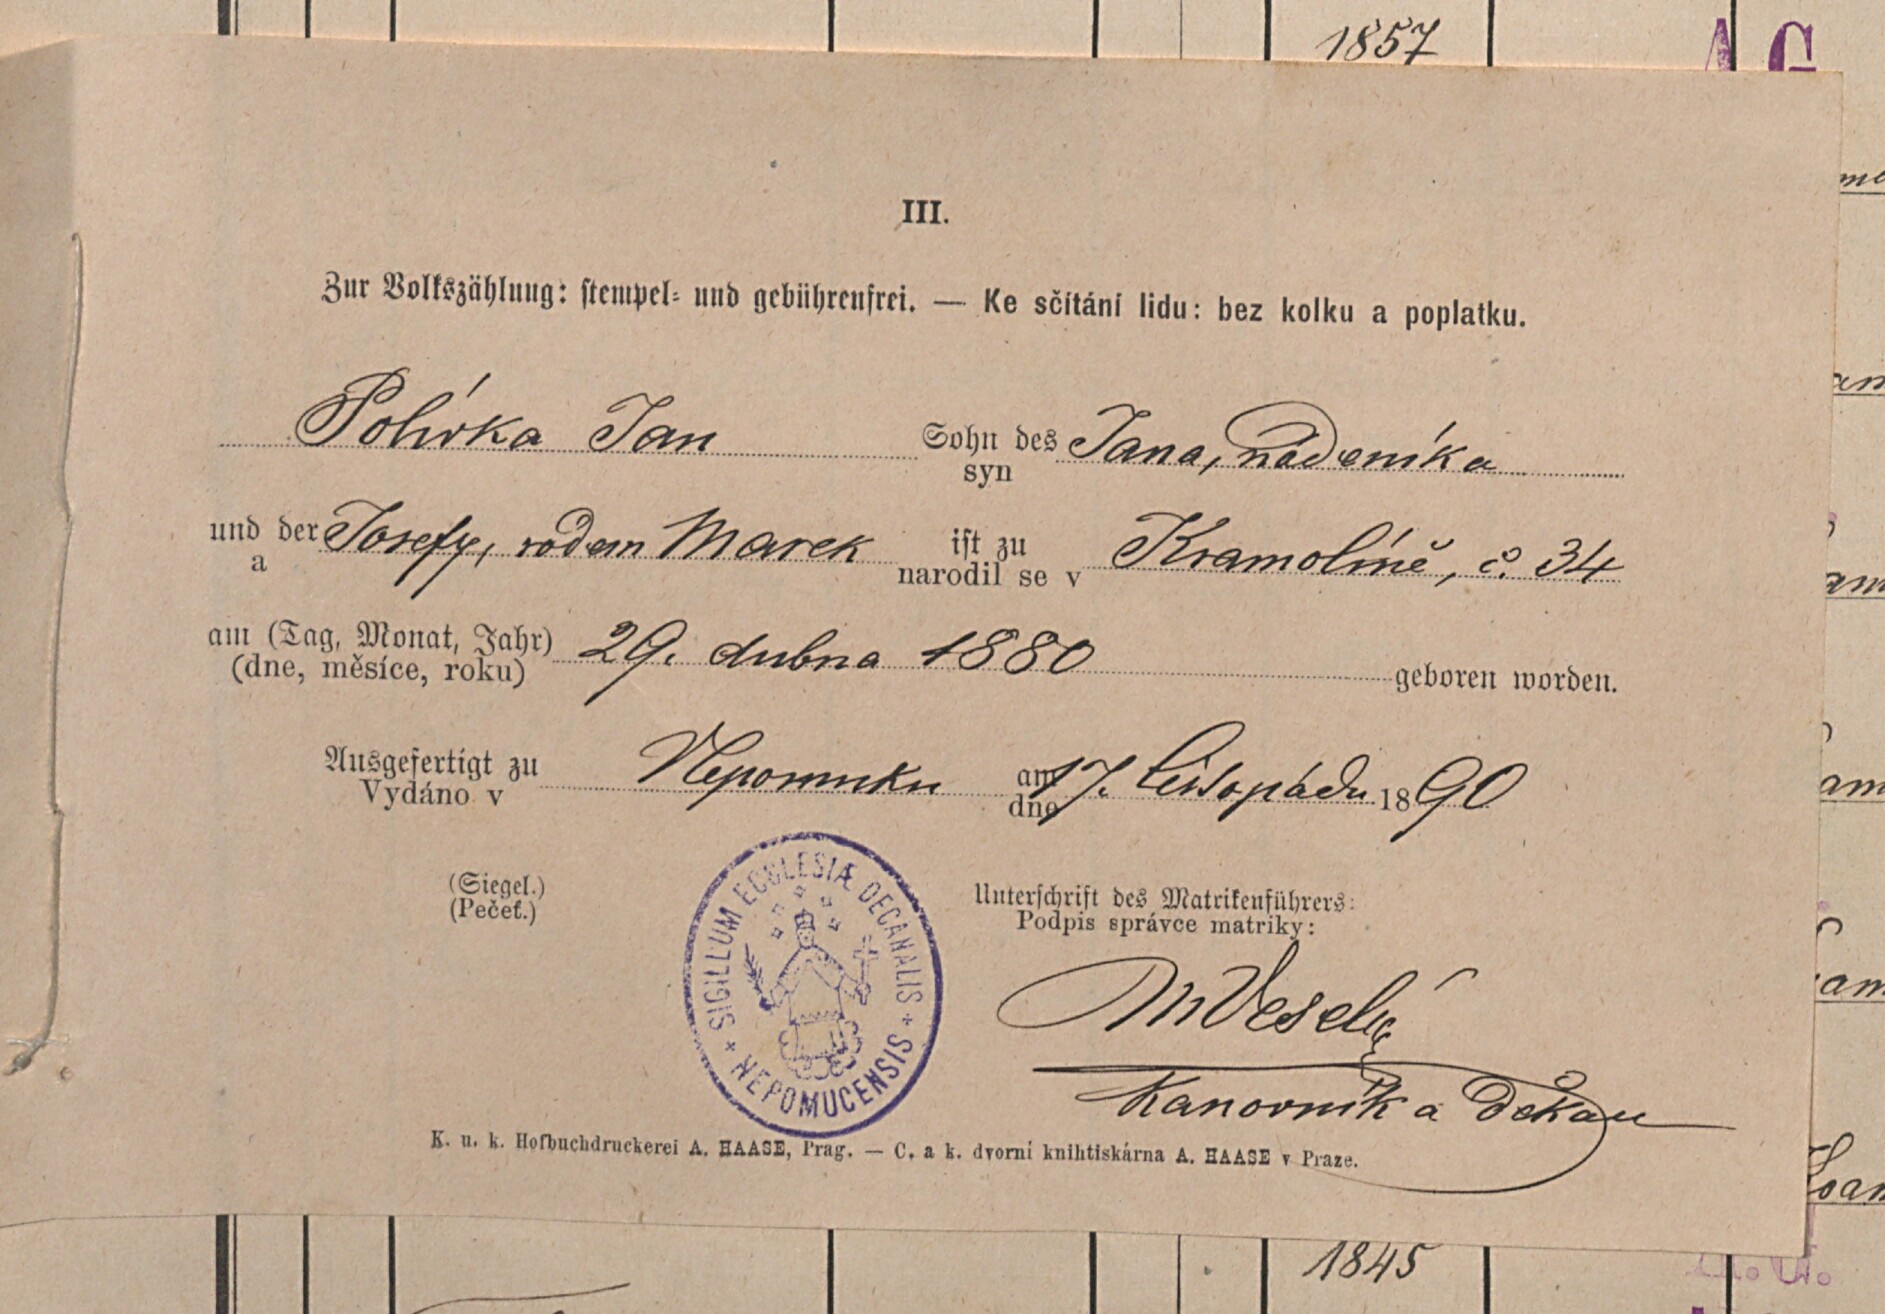 1857
III.
Zur Volkszählung: stempel- und gebührenfrei. — Ke sčítání lidu: bez kolku a poplatku.
Polívka Jan Sohn des Jana, nádeníka
syn
und der Josefy, rodem Marek ist zu Kramolíně, č. 34
a narodil se v
am (Tag, Monat, Jahr) 29. dubna 1880 geboren worden.
(dne, měsíce, roku)
Ausgefertigt zu Nepomuku am 17. listopadu 1890
Vydáno v dne
(Siegel.)
(Pečeť.)
SIGILLUM ECCLESIÆ DECANALIS
NEPOMUCENSIS
Unterschrift des Matrikenführers:
Podpis správce matriky:
M Veselý
Kanovník a děkan
K. u. k. Hofbuchdruckerei A. HAASE, Prag. — C. a k. dvorní knihtiskárna A. HAASE v Praze.
1845